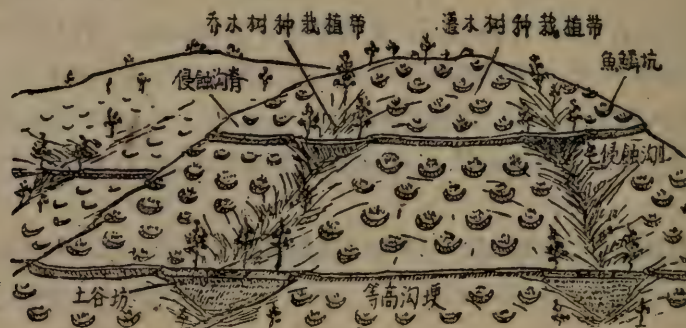 乔木树种栽植带
灌木树种栽植带
侵蚀沟脊
魚鱗坑
侵蚀沟
土谷坊
等高沟埂